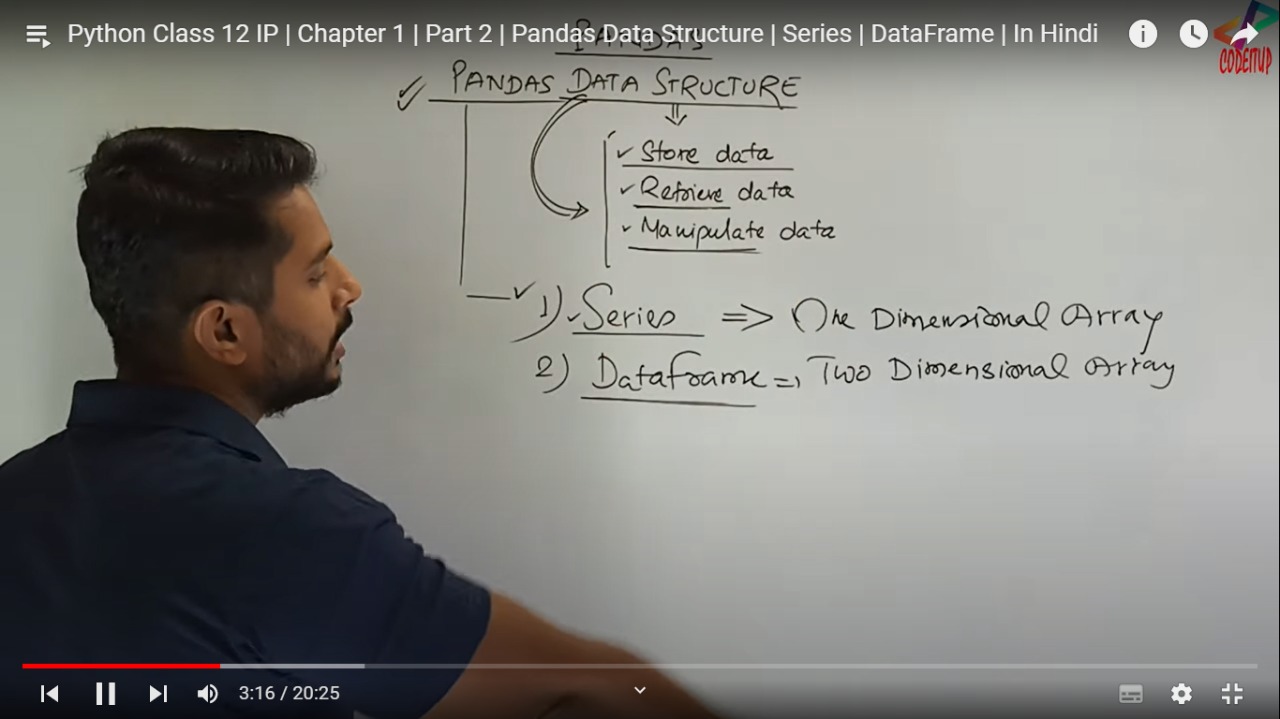 Python Class 12 IP | Chapter 1 | Part 2 | Pandas Data Structure | Series | DataFrame | In Hindi
CODEITUP
PANDA'S
PANDAS DATA STRUCTURE
Store data
Retrieve data
Manipulate data
1) Series => One Dimensional Array
2) DataFrame => Two Dimensional Array
3:16 / 20:25